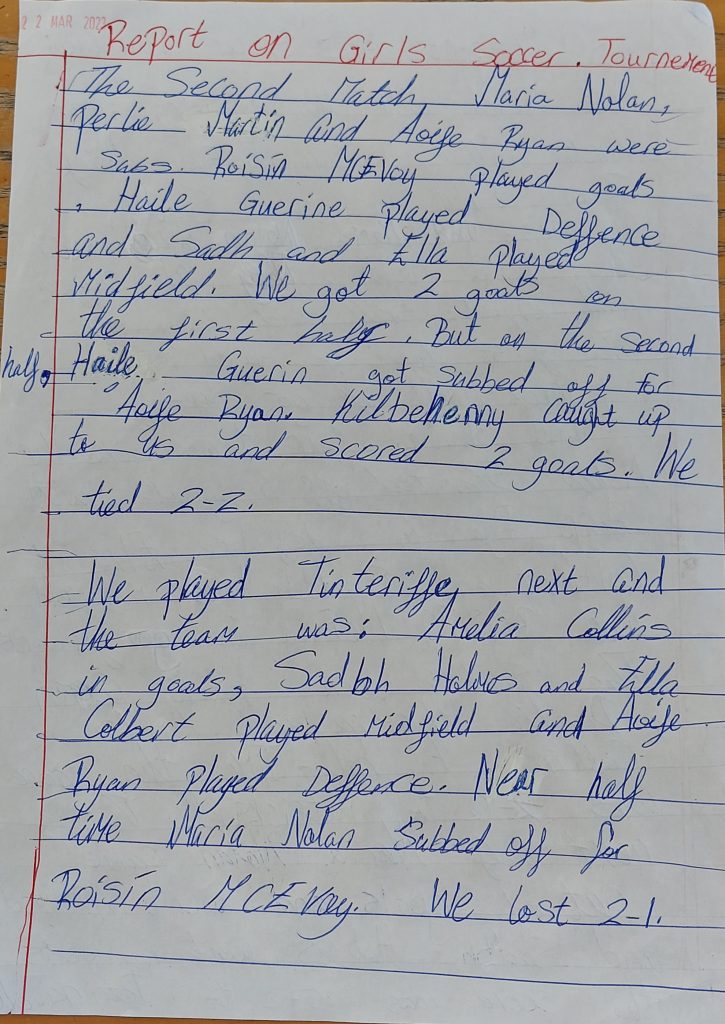 22 MAR 2022
Report on Girls Soccer. Tournement
The Second Match Maria Nolan,
Perlie Martin and Aoife Ryan were
Subs. Roisín McEvoy played goals
, Haile Guerine played Deffence
and Sadh and Ella played
Midfield. We got 2 goals on
the first half. But on the second
half, Haile Guerin got subbed off for
Aoife Ryan. Kilbehenny caught up
to us and scored 2 goals. We
tied 2-2.
We played Tinteriffe, next and
the team was: Amelia Collins
in goals, Sadbh Holmes and Ella
Colbert played Midfield and Aoife
Ryan played Deffence. Near half
time Maria Nolan Subbed off for
Roisín McEvoy. We lost 2-1.